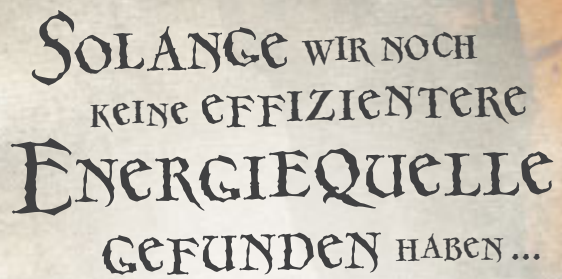 Solange wir noch
keine effizientere
Energiequelle
gefunden haben...